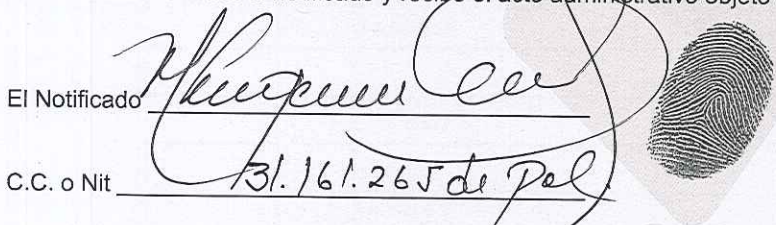 y recibe el acto administrativo objeto
El Notificado
C.C. o Nit 31.161.265 de Pal